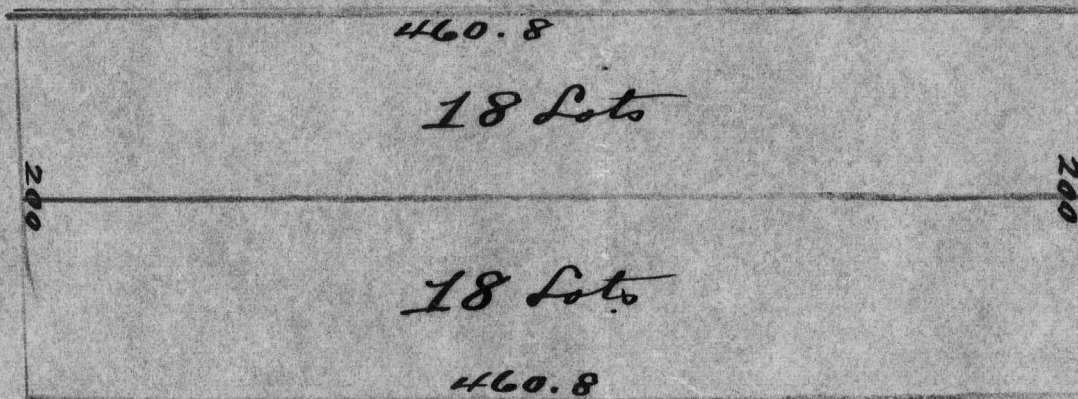 460.8
18 Lots
200
200
18 Lots
460.8